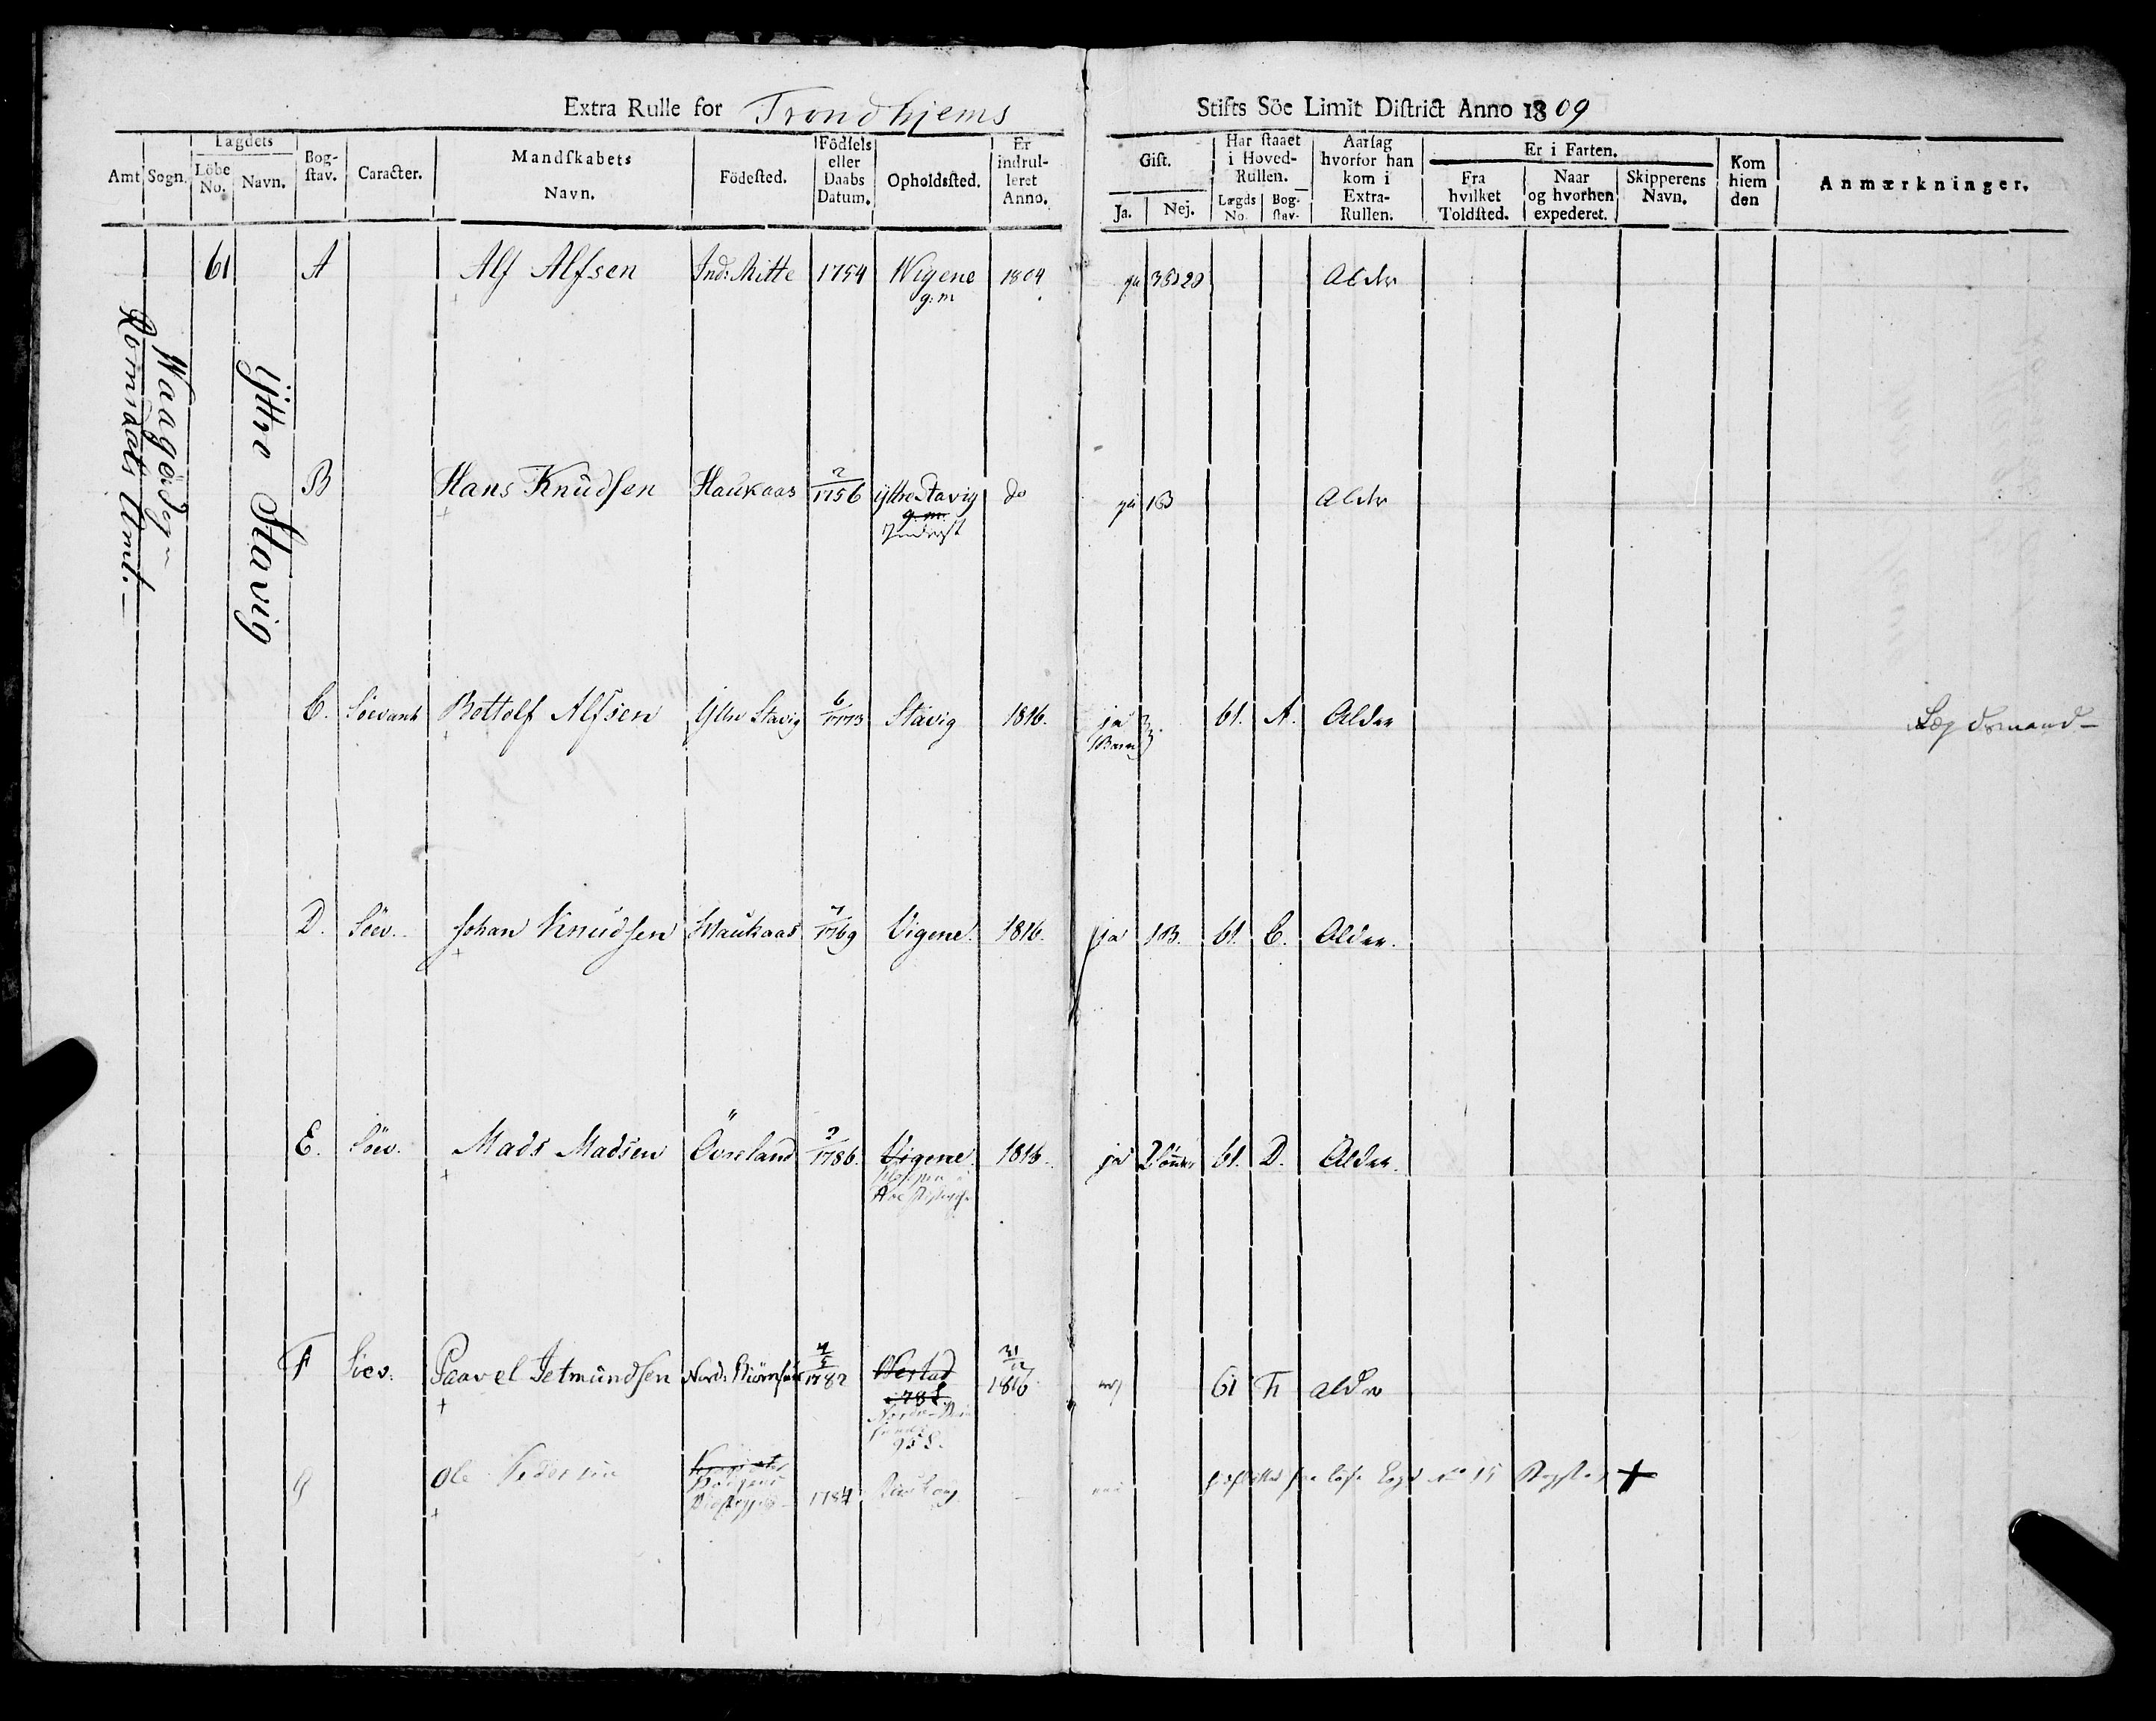 Extra Rulle for Trondhjems Stifts Söe Limit District Anno 1809
Amt. Sogn. Lægdets Löbe No. Navn. Bog-stav. Caracter. Mandskabets Navn. Födested. Födsels eller Daabs Datum. Opholdsted. Er indrul-leret Anno. Gift. Ja. Nej. Har staaet i Hoved-Rullen. Lægds No. Bog-stav. Aarsag hvorfor han kom i Extra-Rullen. Er i Farten. Fra hvilket Toldsted. Naar og hvorhen expederet. Skipperens Navn. Kom hiem den Anmærkninger.
Romsdals Amt.
Waagöe
Ÿttre Stavig
61 A Alf Alfsen Ind: Mitte 1754 Wigene 1804 Alder
g: m
B Hans Knudsen Haukaas 2/1756 ÿttre Stavig do 1B Alder
g. m.
C. Söevant Bottolf Alfsen Yttre Stavig 6/1773 Stavig 1816. ja 61. A. Alder Lægdsmand
D. Söev. Johan Knudsen Haukaas 7/1769 Vigene. 1816. ja 1B. 61. C. Alder.
E. Söev. Mads Madsen Övreland 2/1786. Vigene. 1816. ja 61. D. Alder.
F Söev. Paavel Jetmundsen Nord: 1782 Werstad 1816 61 F alder
G Ole Pedersen 1784